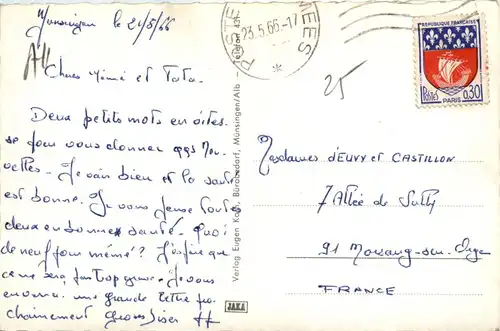 Munsingen le 21/5/66
Chères Mémé et Tata.
Deux petits mots en vites-
se pour vous donner qqs nou-
velles. Je vais bien et la santé
est bonne. Je vous pense toutes
deux en bonne santé. Quoi
de neuf pour mémé? J'espère que
ce ne sera pas trop grave. Je vous
enverrai une grande lettre pro-
chainement Gros bises
Verlag Eugen Koch, Bürobedorf, Münsingen/Alb -
POSTE
MEES
23.5.66-17
25
REPUBLIQUE FRANÇAISE
Postes 0,30
PARIS
Mesdames d'EUVY et CASTILLON
7 Allée de Sully
91 Morsang-sur-Orge
FRANCE
JAKA